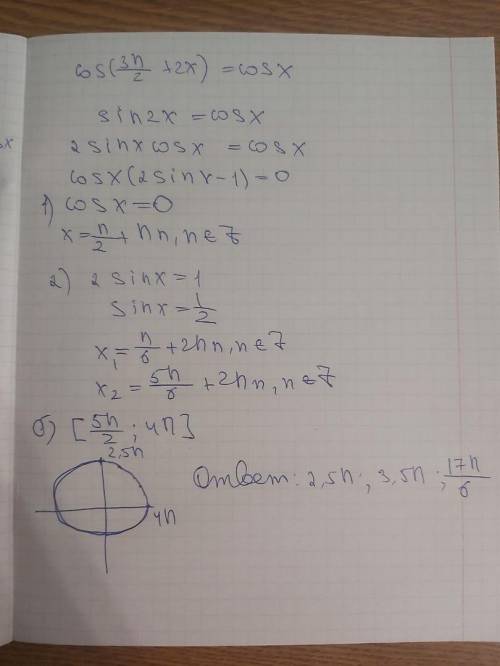 cos(3π/2 + 2x) = cosx
sin2x = cosx
2sinx cosx = cosx
cosx(2sinx - 1) = 0
1) cosx = 0
x = π/2 + πn, n ∈ Z
2) 2sinx = 1
sinx = 1/2
x₁ = π/6 + 2πn, n ∈ Z
x₂ = 5π/6 + 2πn, n ∈ Z
б) [5π/2 ; 4π]
2,5π
4π
Ответ: 2,5π ; 3,5π ; 17π/6